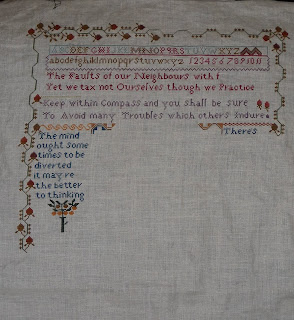 ABCDEFGHIJKLMNOPQRSTUVWXYZ
abcdefghiklmnopqrstuvwxyz 1234567891011
The Faults of our Neighbours with f
Yet we tax not Ourselves though we Practice
Keep within Compass and you shall be sure
To Avoid many Troubles which others Endure
The mind
ought some
times to be
diverted
it may re
the better
to thinking
There's